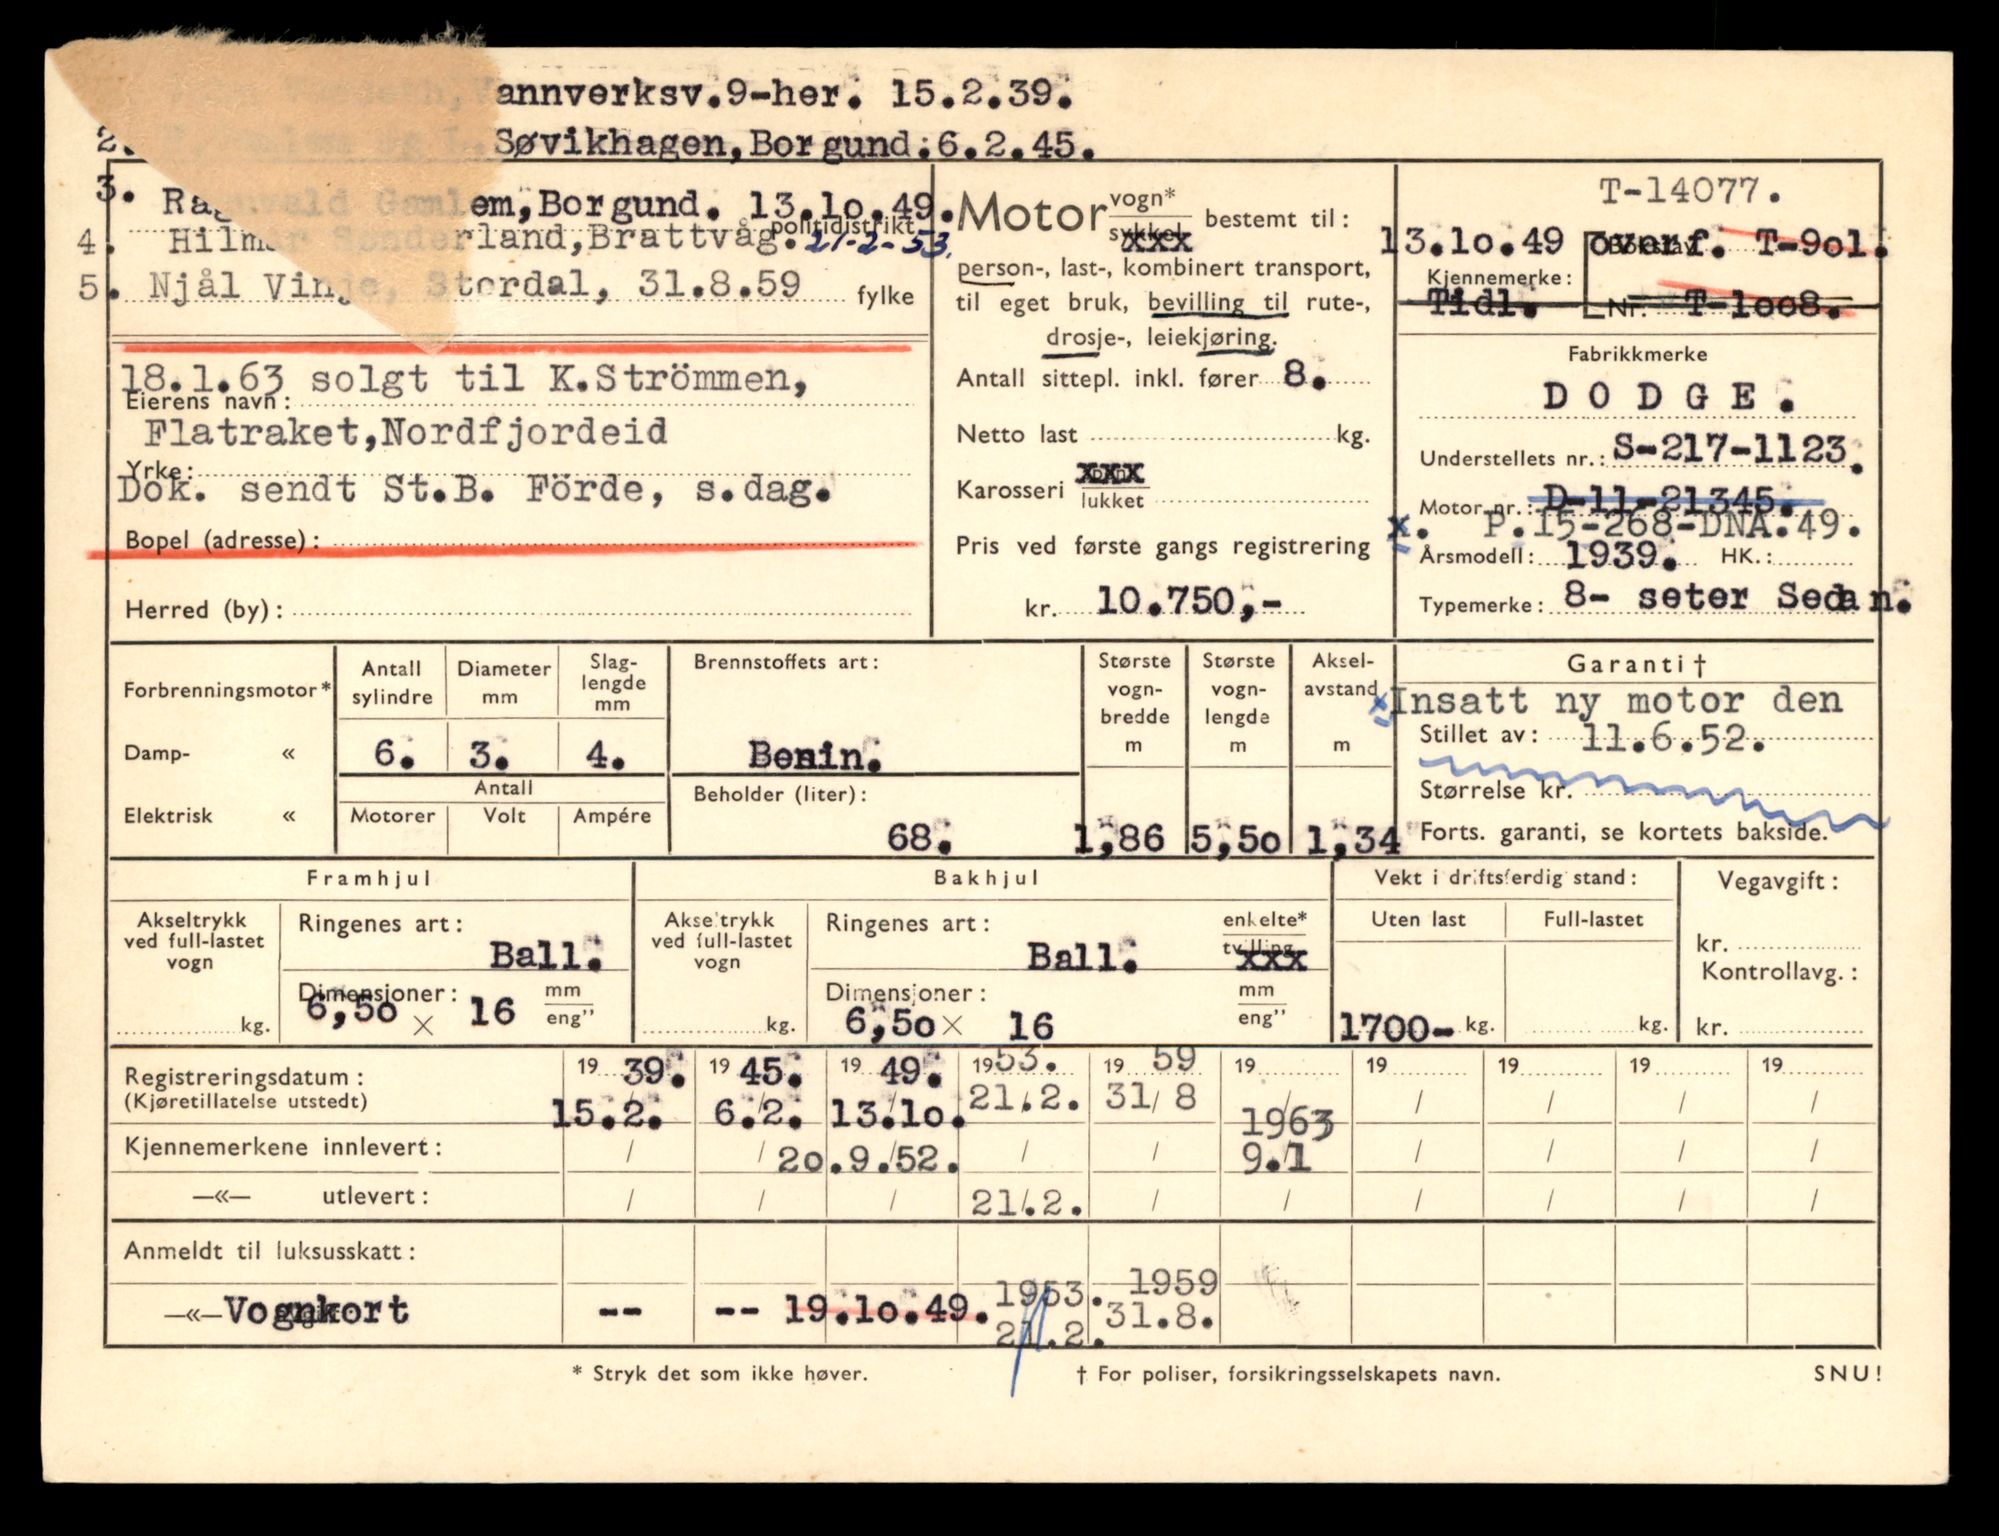 annverksv.9-her. 15.2.39.
2. Søvikhagen,Borgund:6.2.45.
3. Ragnvald Gamlem,Borgund. 13.1o.49.
politidistrikt
4. Hilmar Sønderland,Brattvåg. 21-2-53.
5. Njål Vinje, Stordal, 31.8.59 fylke
18.1.63 solgt til K.Strömmen,
Eierens navn:
Flatraket,Nordfjordeid
Yrke:
Dok. sendt St.B. Förde, s.dag.
Bopel (adresse):
Herred (by):
Motor vogn* sykkel xxx bestemt til:
person-, last-, kombinert transport,
til eget bruk, bevilling til rute-,
drosje-, leiekjøring.
Antall sittepl. inkl. fører 8.
Netto last kg.
Karosseri xxx lukket
Pris ved første gangs registrering
kr. 10.750,-
T-14077.
13.1o.49 overf. T-9o1.
Bokstav
Kjennemerke:
Tidl. Nr. T-1oo8.
Fabrikkmerke
D O D G E .
Understellets nr.: S-217-1123.
Motor nr.: D-11-21345.
x. P.15-268-DNA.49.
Årsmodell: 1939. HK.:
Typemerke: 8- seter Sedan.
Forbrenningsmotor*
Damp- «
Elektrisk «
Antall sylindre
6.
Diameter mm
3.
Slag-lengde mm
4.
Antall
Motorer Volt Ampére
Brennstoffets art:
Bensin.
Beholder (liter):
68.
Største vogn-bredde m
1,86
Største vogn-lengde m
5,5o
Aksel-avstand m
1,34
Garanti†
x Insatt ny motor den
Stillet av: 11.6.52.
Størrelse kr.
Forts. garanti, se kortets bakside.
Framhjul
Akseltrykk ved full-lastet vogn
kg.
Ringenes art:
Ball.
Dimensjoner: mm
6,5o × 16 eng”
Bakhjul
Akseltrykk ved full-lastet vogn
kg.
Ringenes art: enkelte*
Ball. tvilling xxx
Dimensjoner: mm
6,5o × 16 eng”
Vekt i driftsferdig stand:
Uten last Full-lastet
1700- kg. kg.
Vegavgift:
kr.
Kontrollavg.:
kr.
Registreringsdatum: 19 39. 19 45. 19 49. 19 53. 19 59 19 19 19 19 19
(Kjøretillatelse utstedt) 15.2. 6.2. 13.1o. 21.2. 31/8 / / / / /
1963
Kjennemerkene innlevert: / / 2o.9.52. / / 9.1 / / / /
—«— utlevert: / / / 21.2. / / / / / /
Anmeldt til luksusskatt:
1953. 1959
—«— Vognkort -- -- 19.1o.49. 21.2. 31.8.
* Stryk det som ikke høver. † For poliser, forsikringsselskapets navn. SNU!